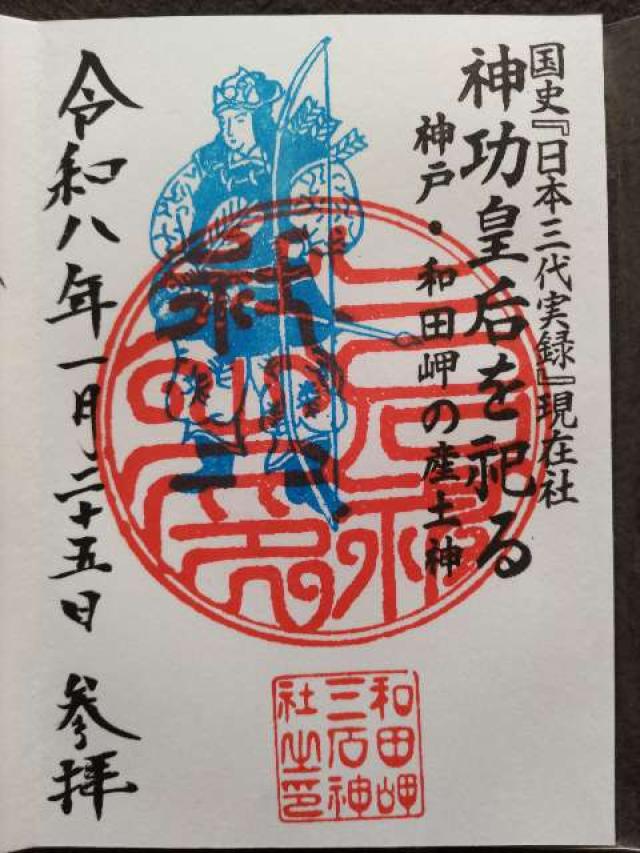 国史『日本三代実録』現在社
神功皇后を祀る
神戸・和田岬の産土神
令和八年一月二十五日 参拝
和田岬
三石神
社之印